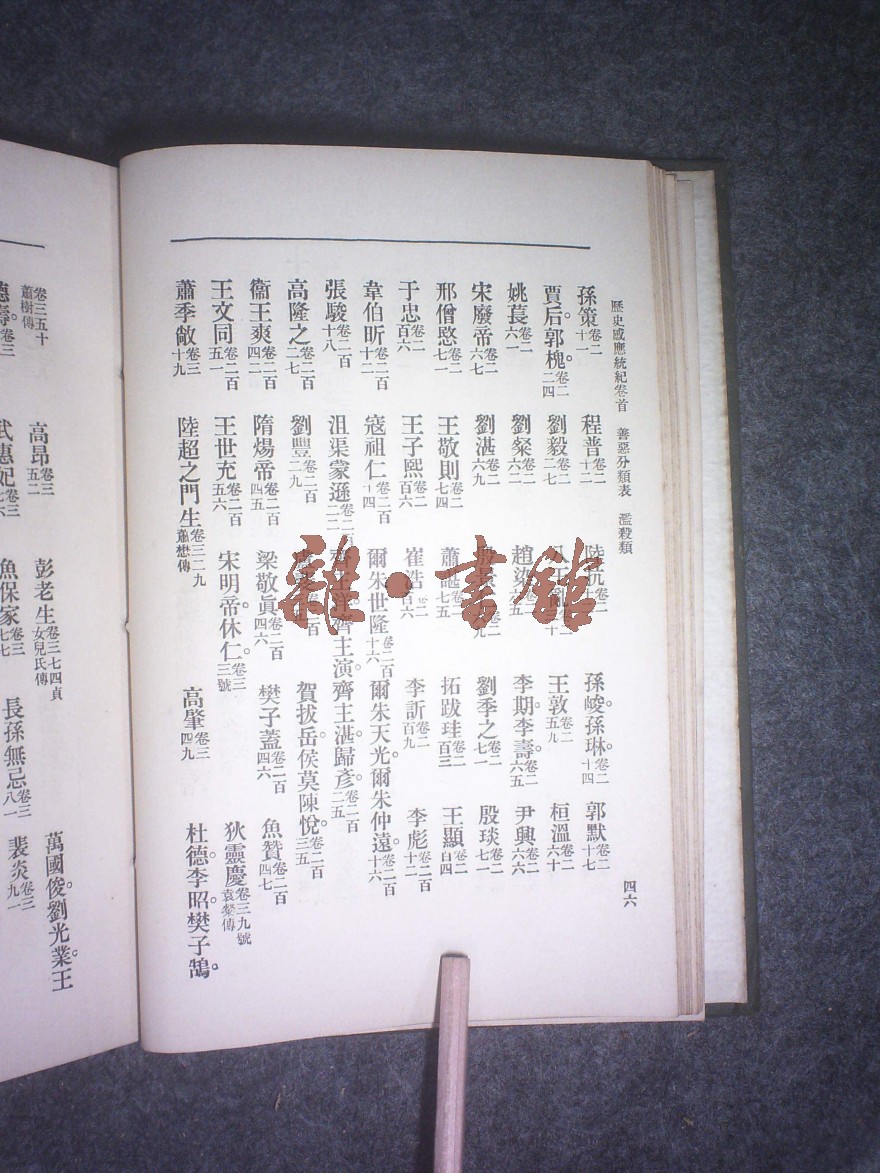 歷史感應統紀卷首 善惡分類表 濫殺類 四六
孫策卷二十一 程普卷二十二 卷二 孫峻。孫琳。卷二十四 郭默卷二十七
賈后。郭槐。卷二二四 劉毅卷二二七 王敦卷二五九 桓溫卷二六十
姚萇卷二六一 劉粲卷二六二 趙 李期。李壽。卷二六五 尹興卷二六六
宋廢帝卷二六七 劉湛卷二六九 劉季之卷二七一 殷琰卷二七一
邢僧愍卷二七一 王敬則卷二七四 蕭 七五 拓跋珪卷二百三 王顯卷二百四
于忠卷二百六 王子熙卷二百六 崔浩卷二百六 李訢卷二百九 李彪卷二百十二
韋伯昕卷二百十二 寇祖仁卷二百十四 爾朱世隆卷二百十六 爾朱天光。爾朱仲遠。卷二百十六
張駿卷二百十八 沮渠蒙遜卷二百二二 齊主洋。齊主演。齊主湛。歸彥。卷二百二五
高隆之卷二百二七 劉豐卷二百二九 卷二百 賀拔岳。侯莫陳悅。卷二百三五
衞王爽卷二百四二 隋煬帝卷二百四五 梁敬眞卷二百四六 樊子蓋卷二百四六 魚贊卷二百四七
王文同卷二百五一 王世充卷二百五六 宋明帝。休仁。卷三三號 狄靈慶卷三九號袁粲傳
蕭季敞卷三十九 陸超之門生卷三二九蕭懋傳 高肇卷三四九 杜德。李昭。樊子鵠。
卷三五十蕭樹傳 高昂卷三五二 彭老生卷三七四貞女兒氏傳 萬國俊。劉光業。王
德壽。卷三 武惠妃卷三七六 魚保家卷三七七 長孫無忌卷三八一 裴炎卷三九一
雜·書館